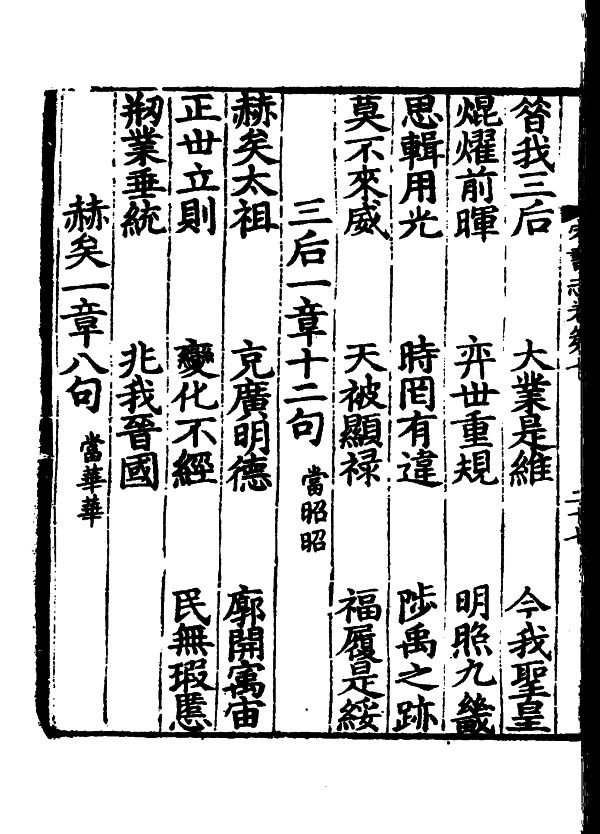 昝我三后　大業是維　今我聖皇
焜燿前暉　弈世重規　明照九畿
思輯用光　時罔有違　陟禹之跡
莫不來威　天被顯祿　福履是綏
三后一章十二句　當昭昭
赫矣太祖　克廣明德　廓開寓宙
正世立則　變化不經　民無瑕慝
剏業垂統　兆我晉國
赫矣一章八句　當華華